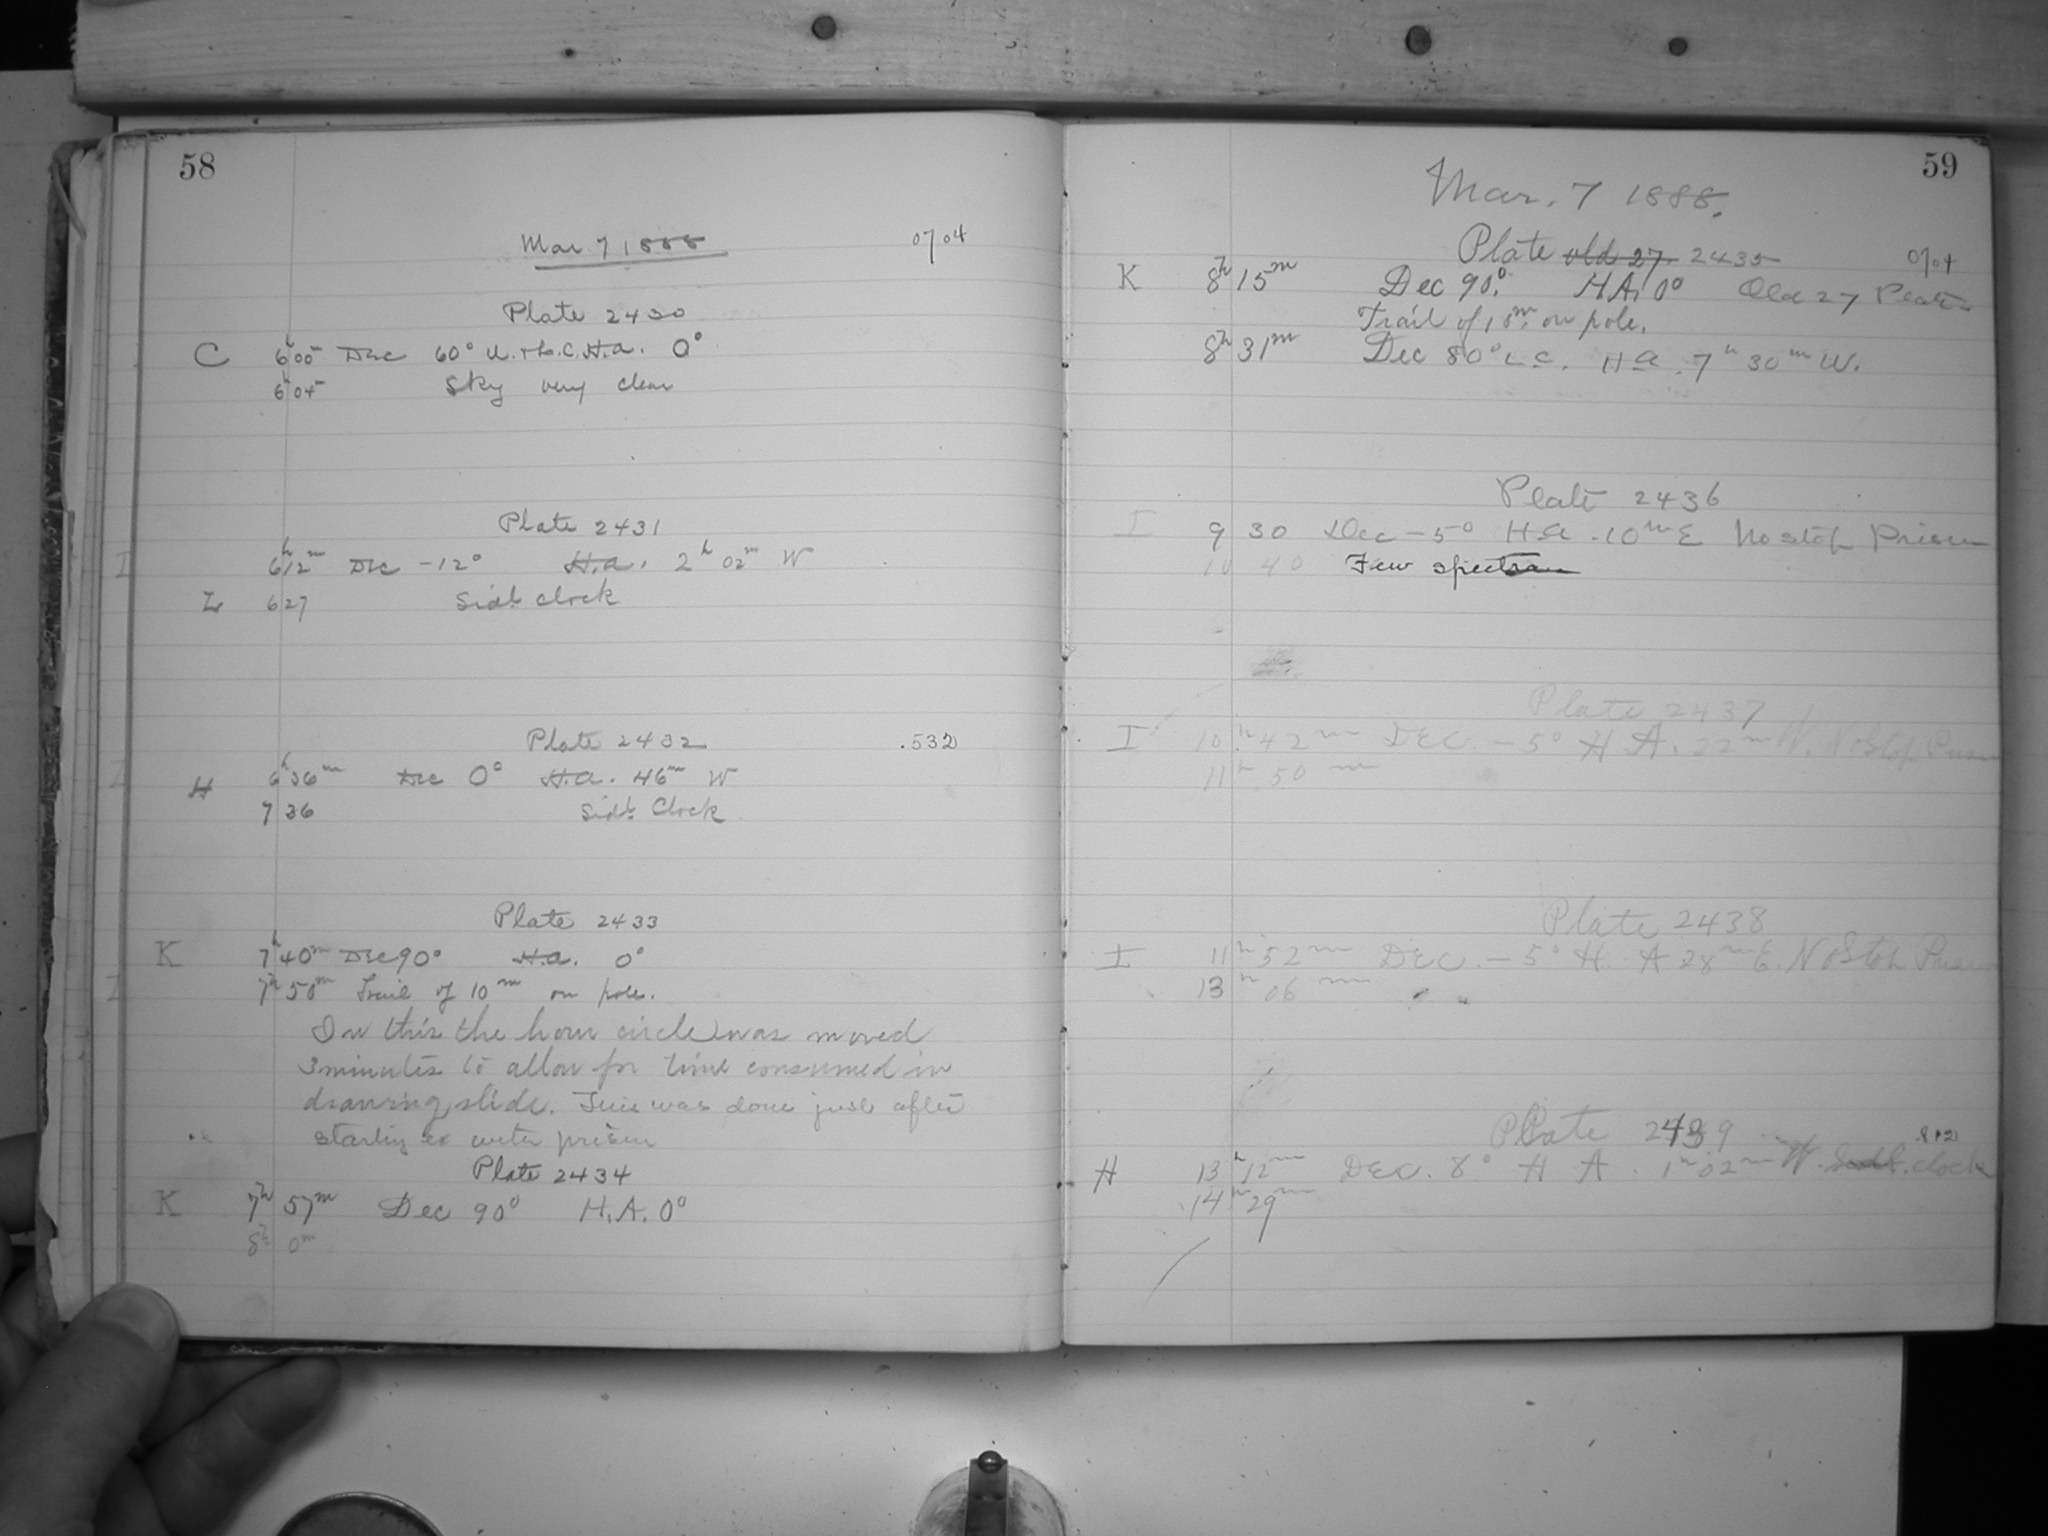 58
Mar 7, 1888 0704
Plate 2430
C 6h 00 Dec 60° U. + L.C. H.a. 0°
6h 05 Sky very clear
Plate 2431
I 6h 12m Dec -12° H.a. 2h 02m W
6 27 Sidl. clock
Plate 2432 .532
I H 6h 36m Dec 0° H.a. 46m W
7 36 Sidl. Clock
Plate 2433
K 7h 40m Dec 90° H.a. 0°
I 7h 50m Trail of 10m on pole.
In this the hour circle was moved
3 minutes to allow for time consumed in
drawing slide. This was done just after
starting ex prism
Plate 2434
K 7h 57m Dec 90° H.A. 0°
8h 0m
59
Mar. 7 1888.
Plate old 27. 2435 0704
K 8h 15m Dec 90° H.A. 0° Old 27 Plate
Trail of 15m. on pole.
8h 31m Dec 80° L.C. H a. 7h 30m W.
Plate 2436
I 9 30 Dec -5° H a. 10m E No stop Prism
10 40 Few spectra
Plate 2437
I 10h 42m DEC. -5° H A. 22m W. No Stop Prism
11h 50m
Plate 2438
I 11h 52m DEC. -5° H. A 28m E. No Stop Prism
13h 06m
Plate 2439 .812
H 13h 12m DEC. 8° H A. 1h 02m W. Sidl. clock
14h 29m